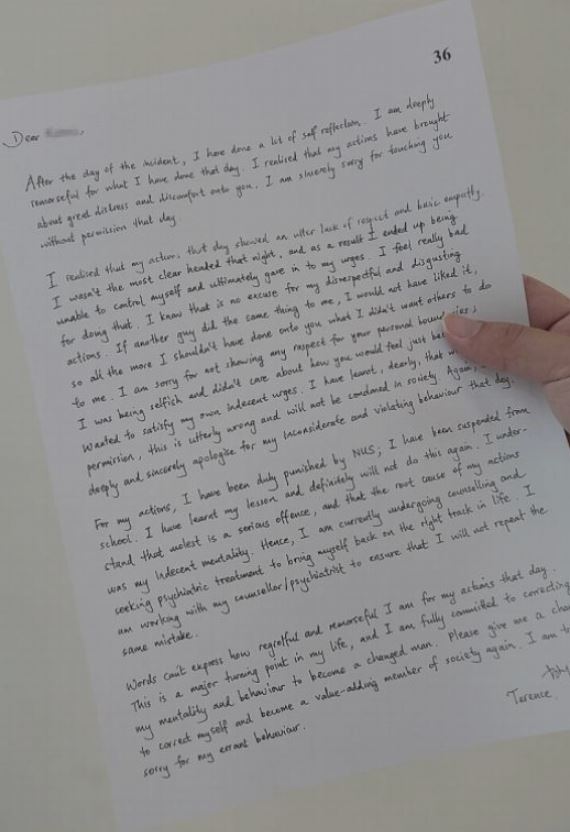 36
Dear
After the day of the incident, I have done a lot of self reflection. I am deeply
remorseful for what I have done that day. I realised that my actions have brought
about great distress and discomfort onto you. I am sincerely sorry for touching you
without permission that day.
I realised that my actions that day showed an utter lack of respect and basic empathy.
I wasn't the most clear headed that night, and as a result I ended up being
unable to control myself and ultimately gave in to my urges. I feel really bad
for doing that. I know that is no excuse for my disrespectful and disgusting
actions. If another guy did the same thing to me, I would not have liked it,
so all the more I shouldn't have done onto you what I didn't want others to do
to me. I am sorry for not showing any respect for your personal
I was being selfish and didn't care about how you would feel just
wanted to satisfy my own indecent urges. I have learnt, dearly, that
permission, this is utterly wrong and will not be condoned in society. Again,
deeply and sincerely apologise for my inconsiderate and violating behaviour that day.
For my actions, I have been duly punished by NUS; I have been suspended from
school. I have learnt my lesson and definitely will not do this again. I under-
stand that molest is a serious offence, and that the root cause of my actions
was my indecent mentality. Hence, I am currently undergoing counselling and
seeking psychiatric treatment to bring myself back on the right track in life. I
am working with my counsellor/psychiatrist to ensure that I will not repeat the
same mistake.
Words can't express how regretful and remorseful I am for my actions that day.
This is a major turning point in my life, and I am fully committed to correcting
my mentality and behaviour to become a changed man. Please give me a
to correct myself and become a value-adding member of society again. I am
sorry for my errant behaviour.
Terence